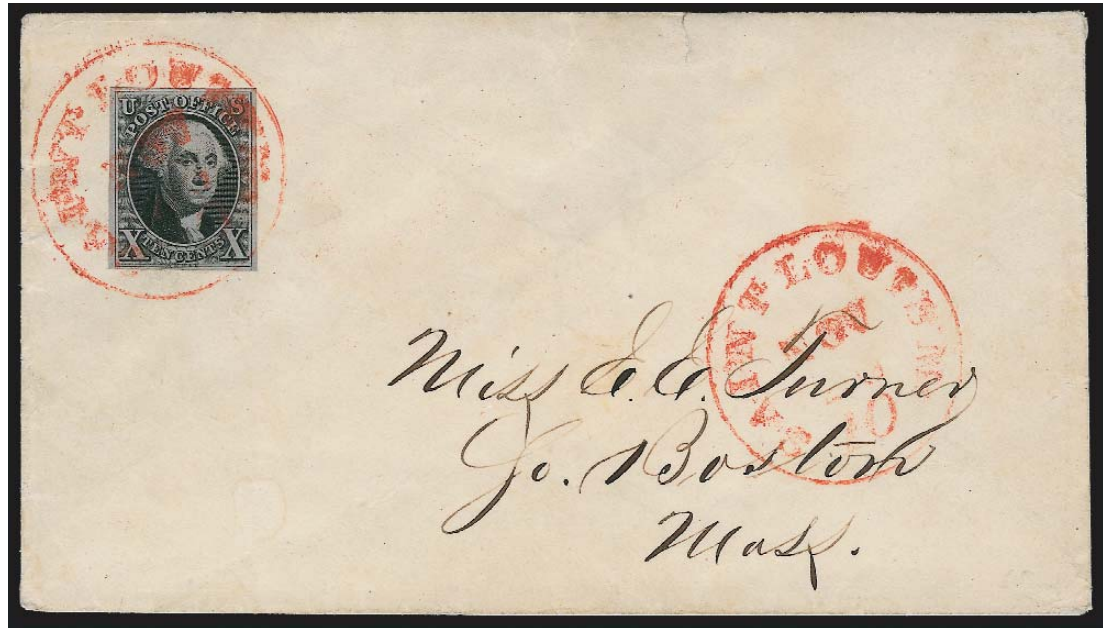 SAINT LOUIS
U S
POST OFFICE
X TEN CENTS X
SAINT LOUIS Mo.
NOV
10
Miss E. E. Turner
So. Boston
Mass.